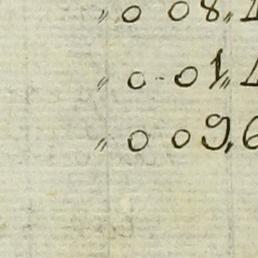 „ 0 08„
„ 0-01„
„ 0 09,6